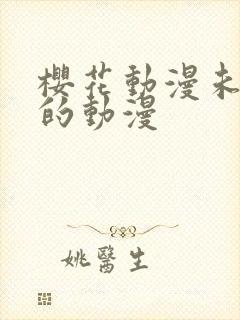 櫻花動漫未
的動漫
姚醫生